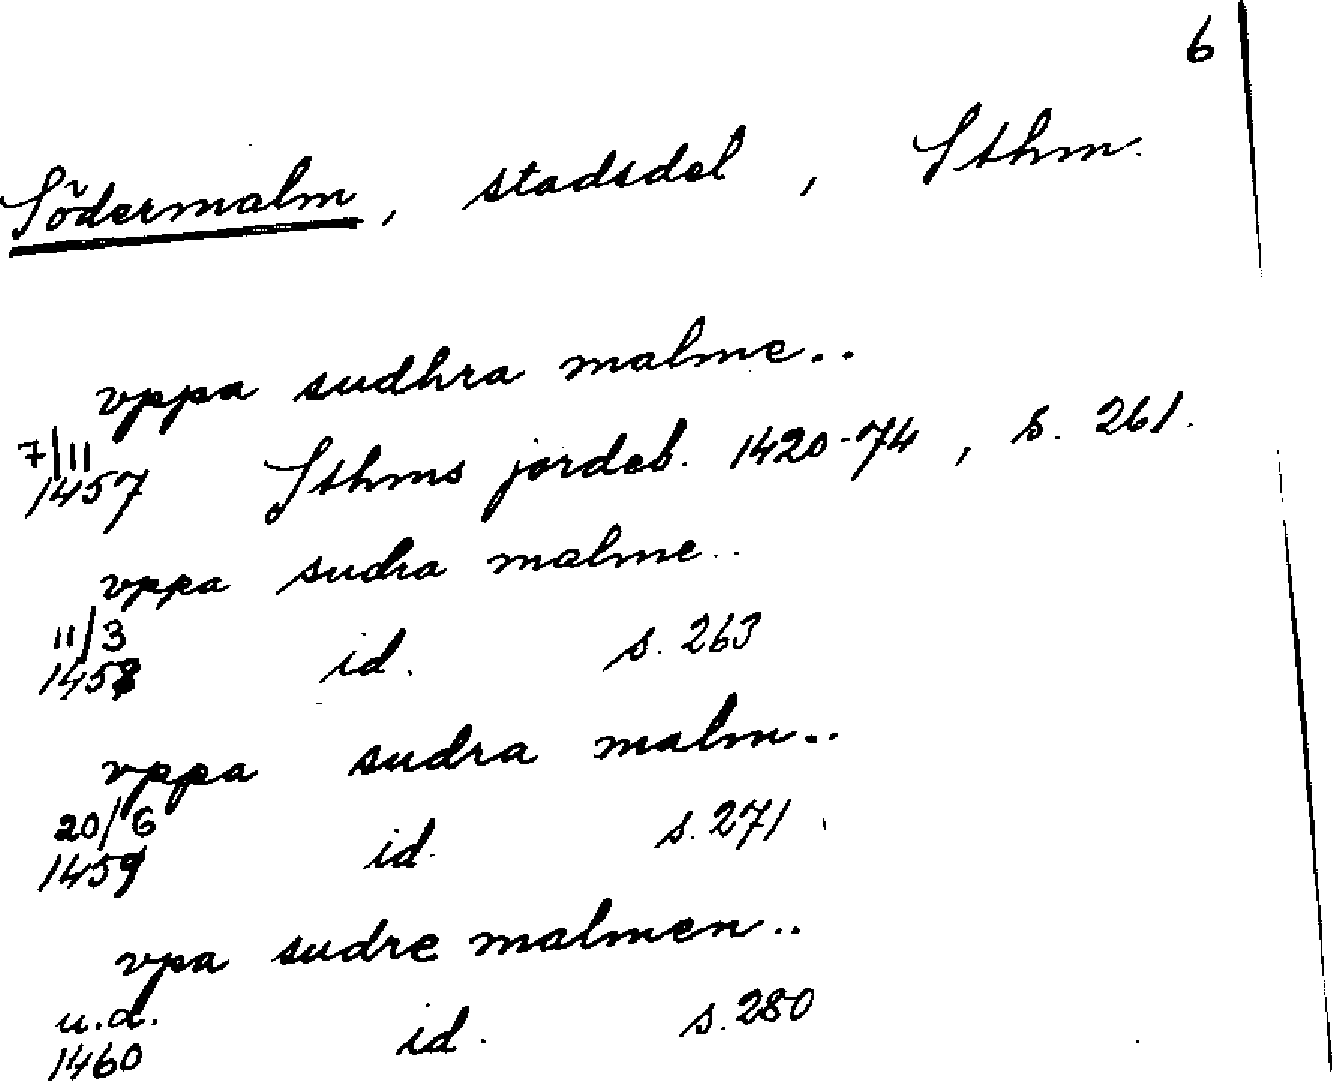 6
Södermalm, stadsdel, Sthm.
vppa sudhra malme..
7/11
1457 Sthms jordeb. 1420-74, s. 261.
vppa sudra malme..
11/3
1458 id. s. 263
vppa sudra malm..
20/6
1459 id. s. 271
vpa sudre malmen..
u.d.
1460 id. s. 280